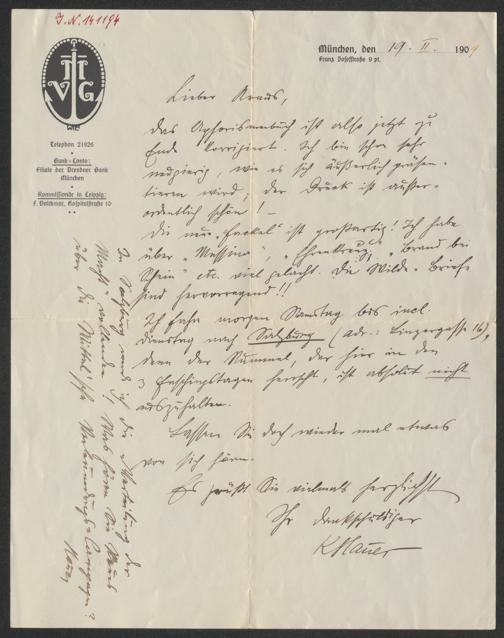 J.N. 141194
MVG
München, den 19. II. 1909
Franz Josefstraße 9 pt.
Telephon 21926
Bank-Conto:
Filiale der Dresdner Bank
München
Kommissionär in Leipzig:
F. Volckmar, Hospitalstraße 10
Lieber Kraus,
das Aphorismenbuch ist also jetzt zu
Ende korrigiert. Ich bin schon sehr
neugierig, wie es sich äußerlich präsen-
tieren wird, der Druck ist außer-
ordentlich schön! –
Die neue „Fackel“ ist großartig! Ich habe
über „Messina“, „Ehrenkreuz“, „Brand bei
Schein“ etc. viel gelacht. Die Wilde-Briefe
sind hervorragend!!
Ich fahre morgen Samstag bis incl.
Dienstag nach Salzburg (Adr.: Linzergasse 16),
denn der Rummel, der hier in den
3 Faschingstagen herrscht, ist absolut nicht
auszuhalten.
Lassen Sie doch wieder mal etwas
von sich hören.
Es grüßt Sie vielmals herzlichst
Ihr dankschuldiger
K Hauer
In Salzburg werde ich die Bearbeitung der
Macht vollenden! Was hören Sie Neues
über die Mittel'sche Verleumdungs-Campagne?
Hauer